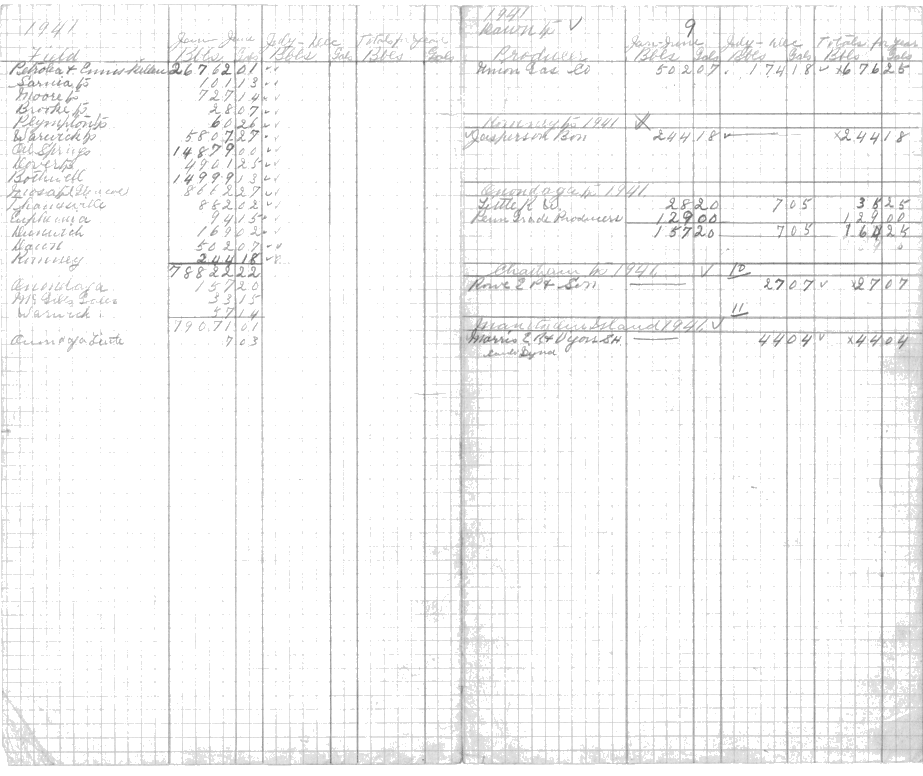 1941
Jan-June July-Dec Totals for Year
Field Bbls Gals Bbls Gals Bbls Gals
Petrolea & Enniskillen 26702 01
Sarnia Tp 101 13
Moore Tp 727 14
Brooke Tp 28 07
Plympton Tp 60 26
Warwick Tp 5807 27
Oil Springs 14879 00
Dover Tp 4901 25
Bothwell 14999 13
Mosa 8662 27
Thamesville 882 02
Euphemia 94 15
Dunwich 169 02
Dawn 502 07
Romney 244 18
78822 22
Onondaga 157 20
33 15
Warwick 57 14
79071 01
Onondaga Little 7 03
1941
Dawn Tp ✓ 9
Jan-June July-Dec Totals for Year
Producer Bbls Gals Bbls Gals Bbls Gals
Union Gas Co 502 07 174 18 ✓ x676 25
Romney Tp 1941
Jasperson Bon 244 18 x244 18
Onondaga Tp 1941
Little 28 20 7 05 35 25
Penn Grade Producers 129 00 129 00
157 20 7 05 164 25
Chatham Tp 1941 ✓ 10
Rowe E P & Son 27 07 ✓ x27 07
11
Manitoulin Island 1941 ✓
Morris E 44 04 ✓ x44 04